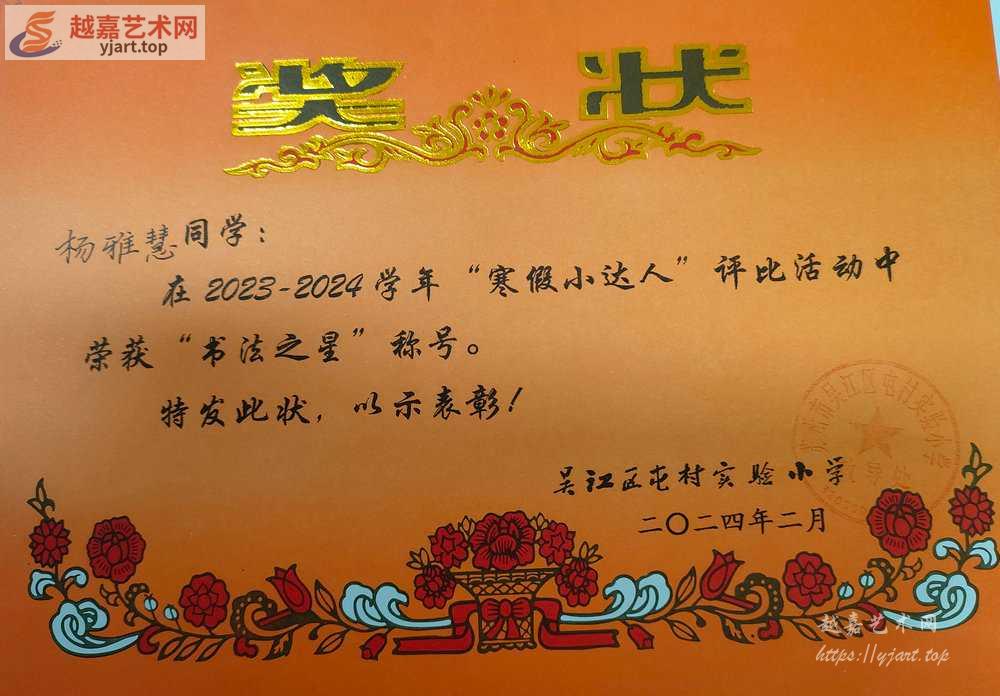 越嘉艺术网
yjart.top
奖状
杨雅慧同学：
在2023-2024学年“寒假小达人”评比活动中
荣获“书法之星”称号。
特发此状，以示表彰！
吴江区屯村实验小学
二〇二四年二月
苏州市吴江区屯村实验小学
越嘉艺术网
https://yjart.top